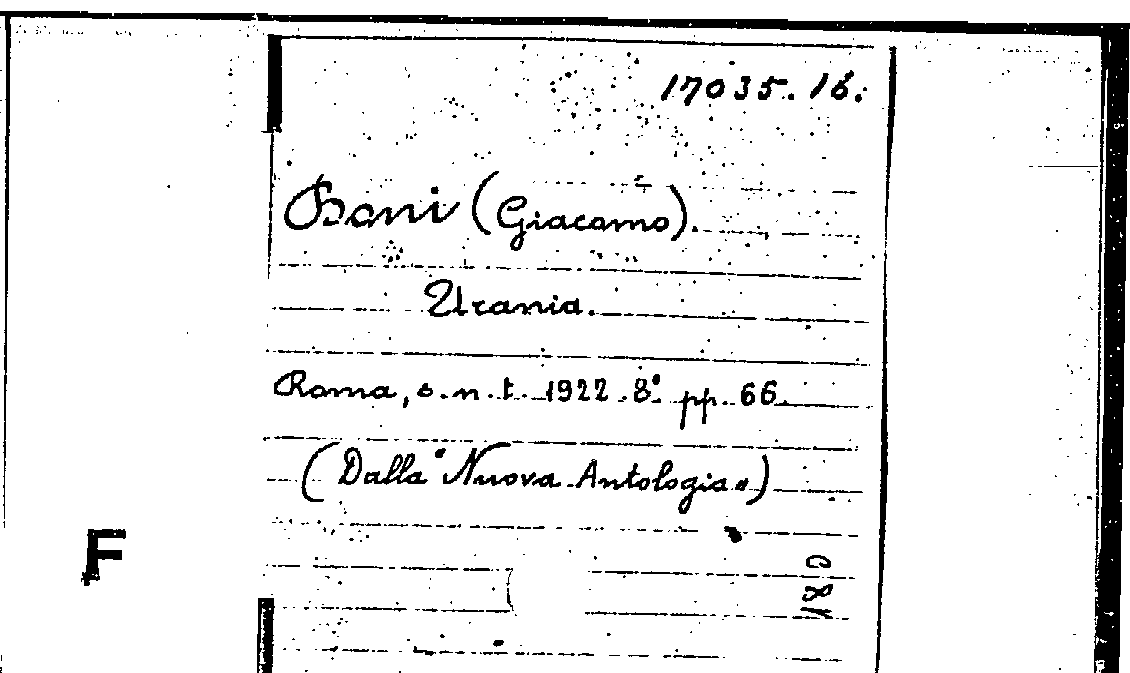 17035.16.
Boni (Giacomo).
Urania.
Roma, s.n.t. 1922. 8° pp. 66.
(Dalla "Nuova Antologia")
F
180